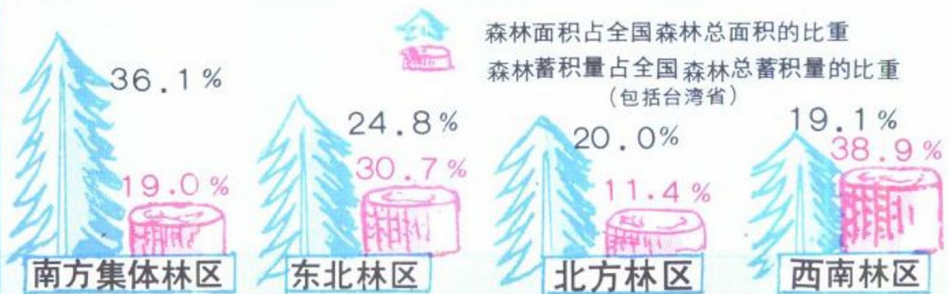 森林面积占全国森林总面积的比重
森林蓄积量占全国森林总蓄积量的比重
（包括台湾省）
36.1%
19.0%
南方集体林区
24.8%
30.7%
东北林区
20.0%
11.4%
北方林区
19.1%
38.9%
西南林区